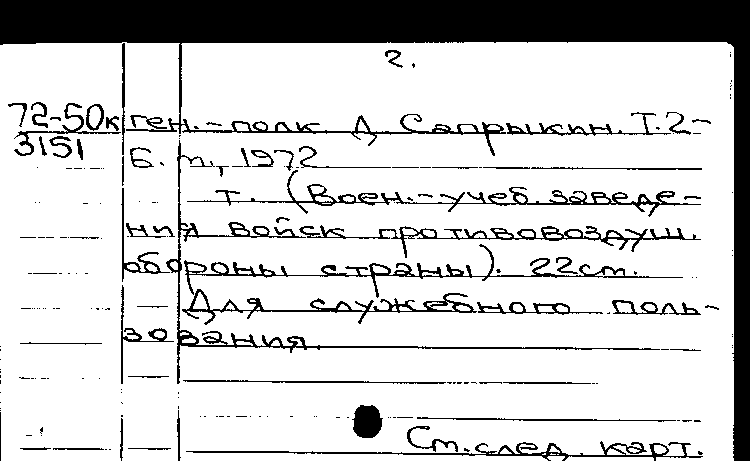 2.
72-50к ген.-полк Д Сапрыкин. Т.2-
3151 Б. м., 1972
т. (Воен.-учеб. заведе-
ния войск противовоздуш.
обороны страны). 22см.
Для служебного поль-
зования.
См. след. карт.